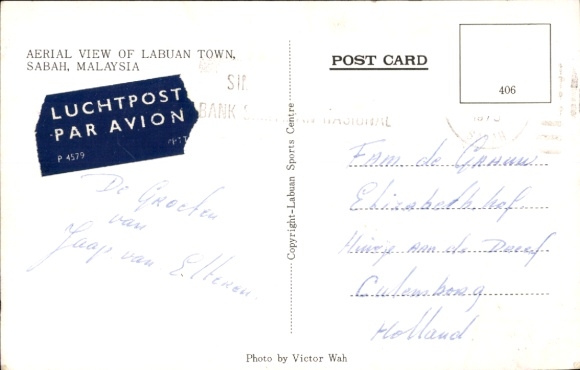 AERIAL VIEW OF LABUAN TOWN,
SABAH, MALAYSIA
LUCHTPOST
PAR AVION
P 4579
De Groeten
van
Jaap van
Copyright-Labuan Sports Centre
POST CARD
406
BANK NASIONAL
Fam. de
Elisabeth hof.
Huize aan de
Culemborg
Holland.
Photo by Victor Wah